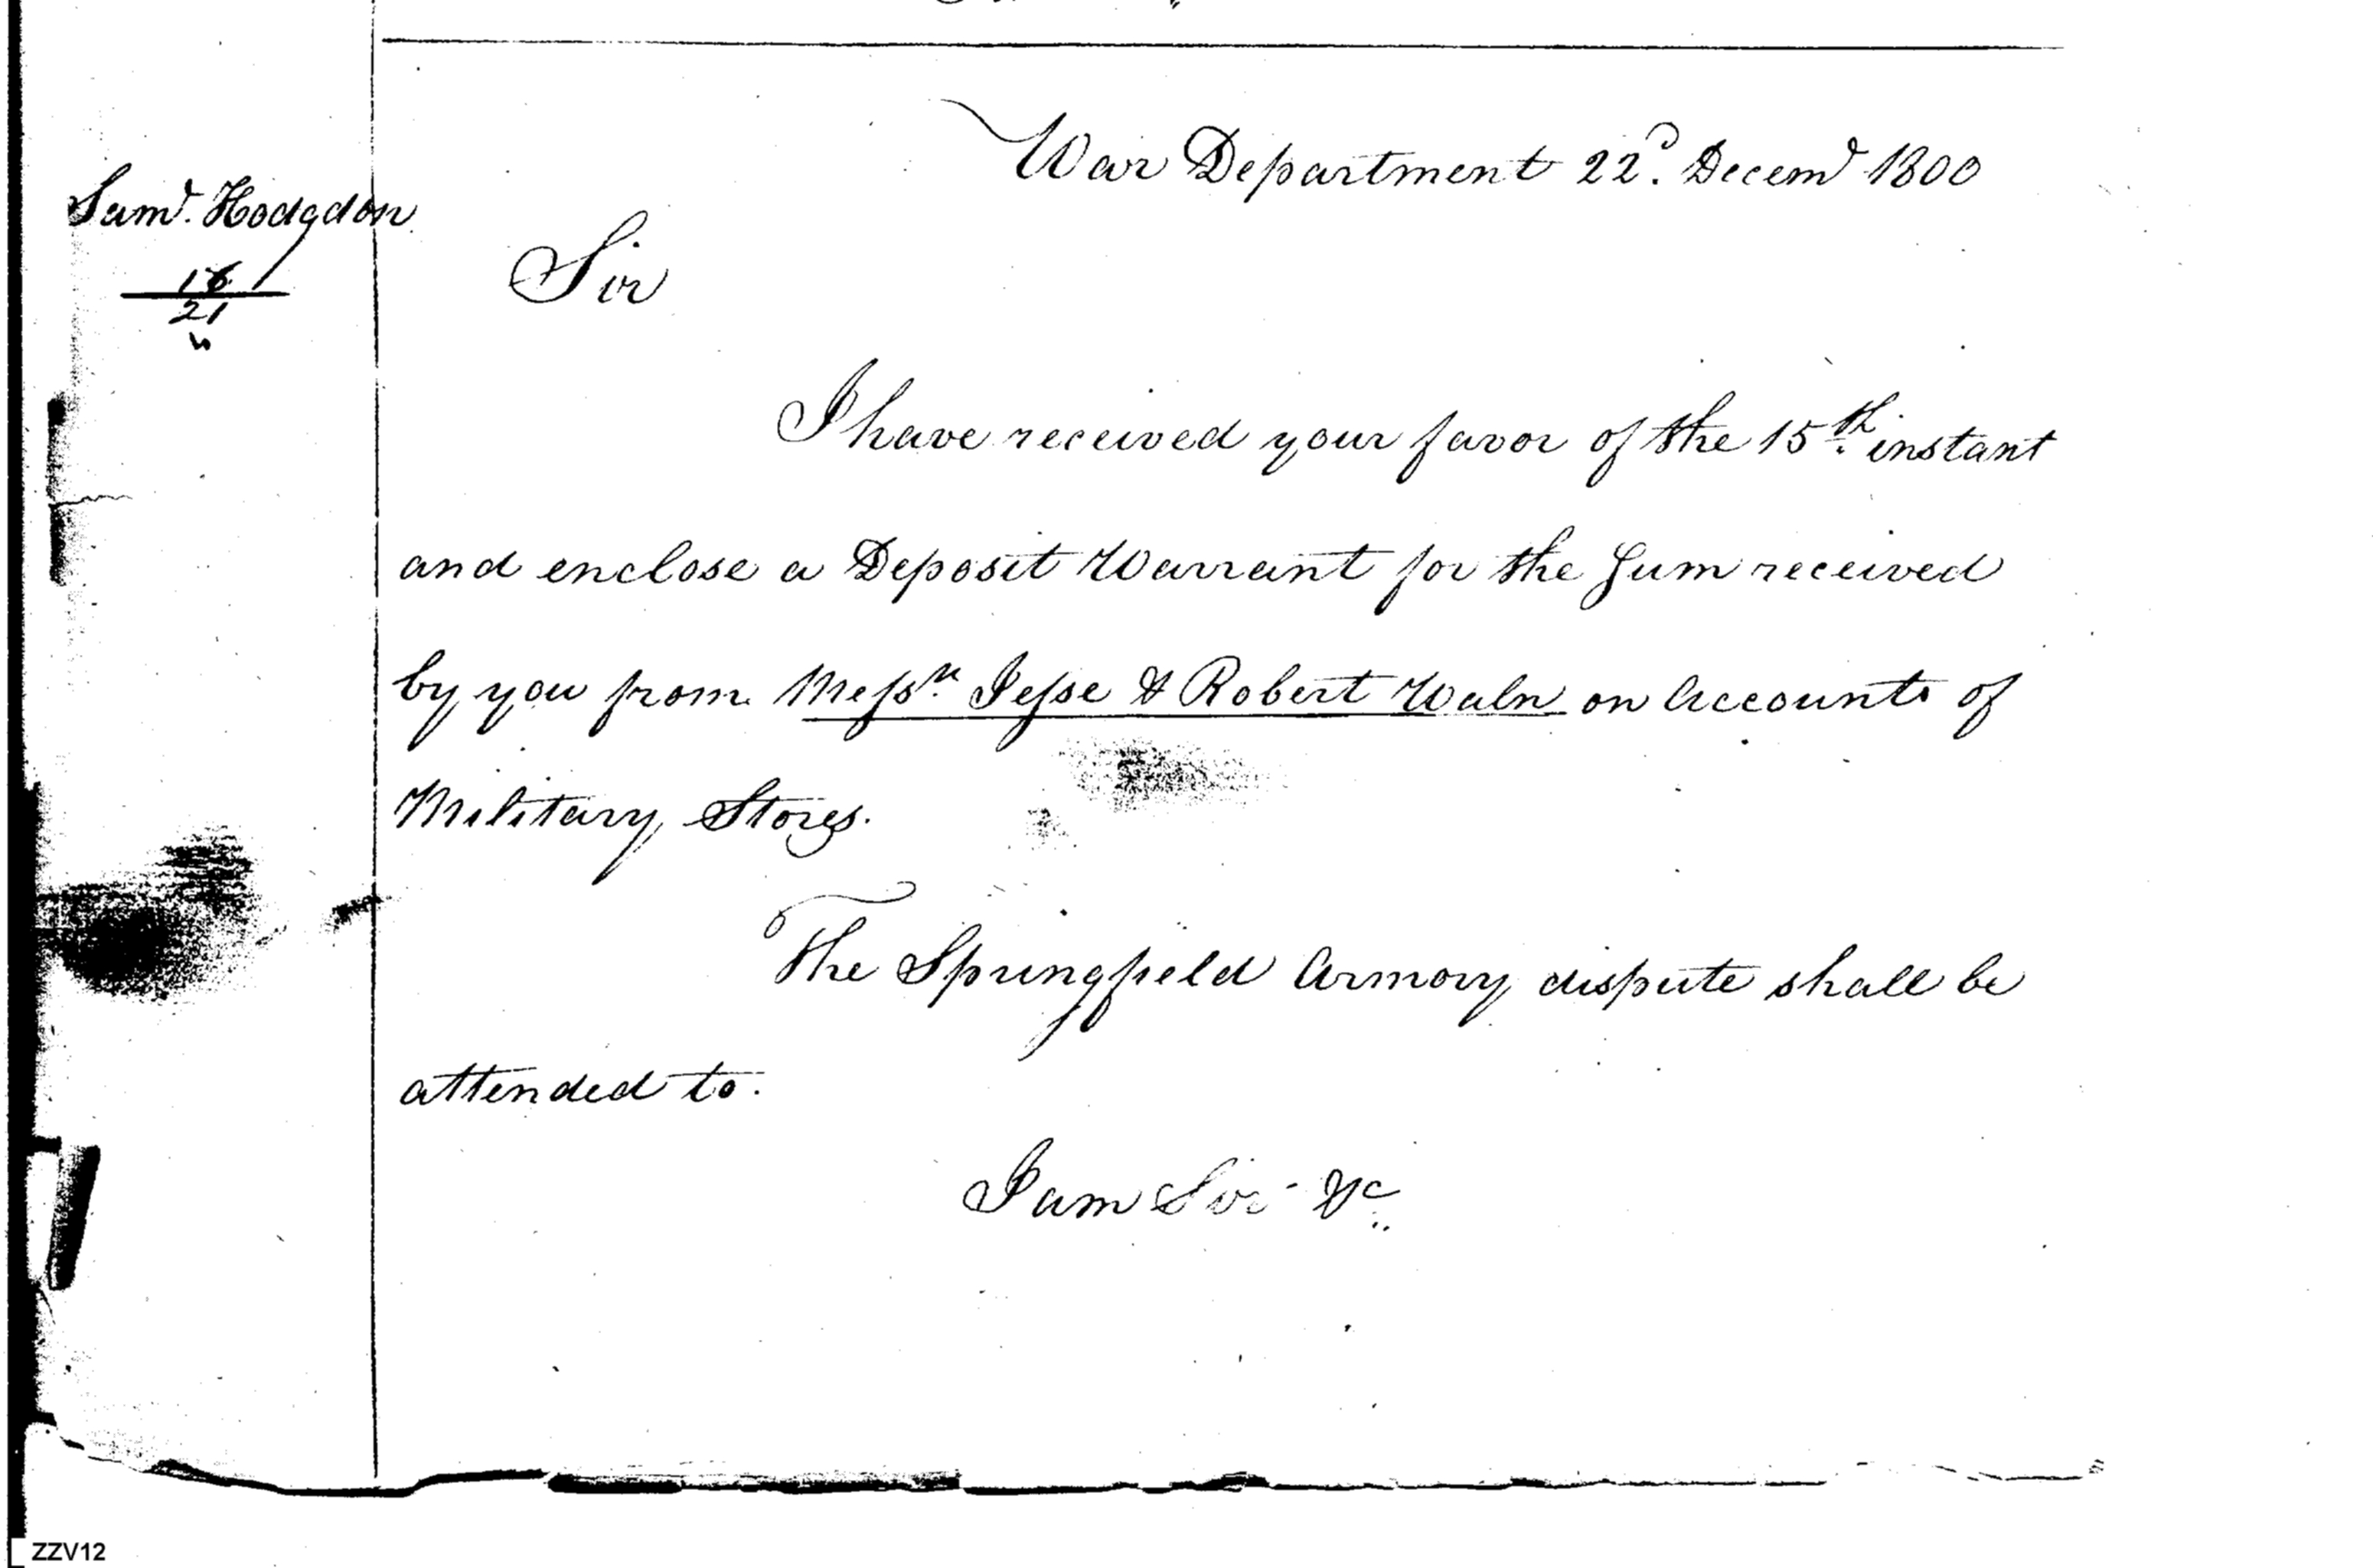 War Department 22d. Decemr 1800
Saml. Hodgdon
16
21
Sir
I have received your favor of the 15th. instant
and enclose a Deposit Warrant for the Sum received
by you from Messrs. Jesse & Robert Waln on Accounts of
Military Stores.
The Springfield Armory dispute shall be
attended to.
I am Sir - &c
ZZV12